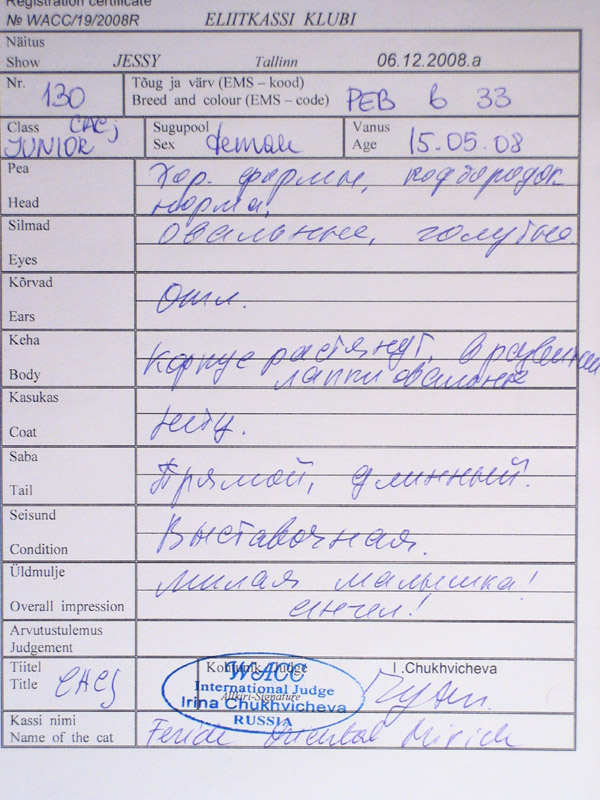 Registration certificate
№ WACC/19/2008R ELIITKASSI KLUBI
Näitus
Show JESSY Tallinn 06.12.2008.a
Nr. 130 Tõug ja värv (EMS – kood)
Breed and colour (EMS – code) PEB b 33
Class CACJ Sugupool Vanus
JUNIOR Sex female Age 15.05.08
Pea Хор. формы, подбородок
Head норма,
Silmad овальные, голубые
Eyes
Kõrvad
Ears отл.
Keha корпус растянут, в развитии
Body лапки овальные
Kasukas
Coat нету.
Saba
Tail Прямой, длинный.
Seisund
Condition Выставочная.
Üldmulje милая малышка!
Overall impression ангел!
Arvutustulemus
Judgement
Tiitel Kohtunik-Judge I.Chukhvicheva
Title CACJ
WACC
International Judge
Allkiri-Signature
Irina Chukhvicheva
RUSSIA
Kassi nimi
Name of the cat Oriental